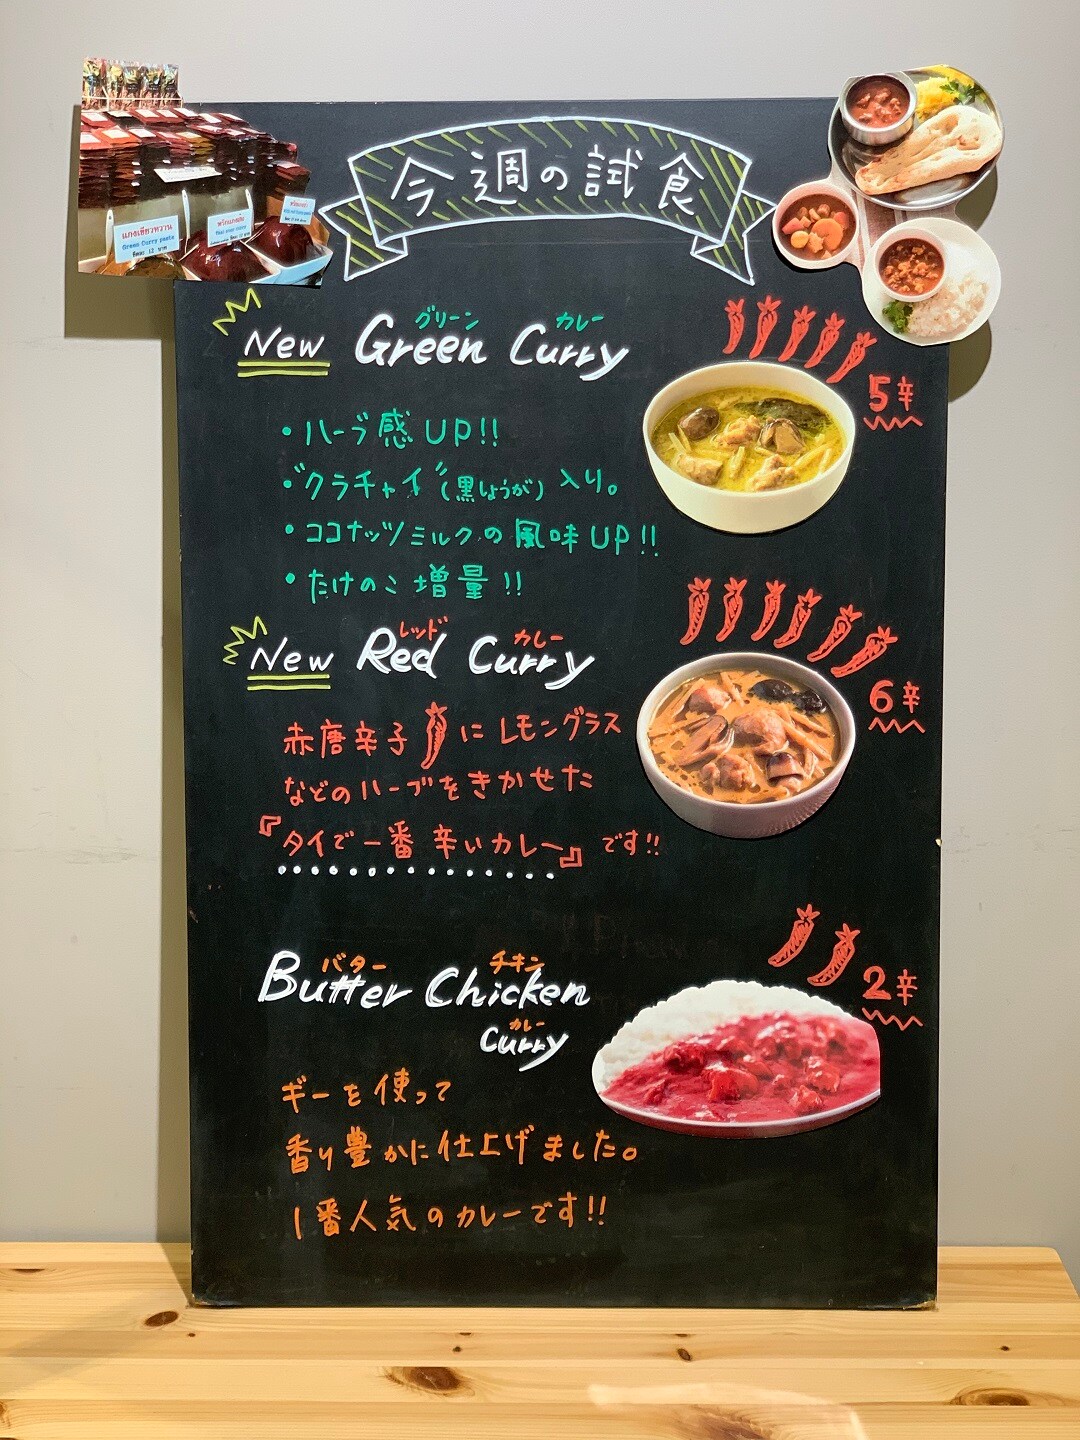 今週の試食
แกงเขียวหวาน
Green Curry paste
New Green Curry
グリーン カレー
5辛
・ハーブ感UP!!
・"クラチャイ"(黒しょうが)入り。
・ココナッツミルクの風味UP!!
・たけのこ増量!!
New Red Curry
レッド カレー
6辛
赤唐辛子にレモングラス
などのハーブをきかせた
『タイで一番辛いカレー』です!!
Butter Chicken
バター チキン
Curry
カレー
2辛
ギーを使って
香り豊かに仕上げました。
1番人気のカレーです!!